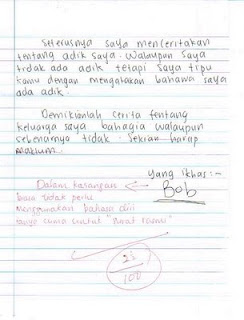 Seterusnya saya menceritakan
tentang adik saya. Walaupun saya
tidak ada adik tetapi saya tipu
kamu dengan mengatakan bahawa saya
ada adik.
Demikianlah cerita tentang
keluarga saya bahagia walaupun
sebenarnya tidak. Sekian harap
maklum.
Yang ikhlas:-
Bob
Dalam karangan
biasa tidak perlu
menggunakan bahasa diri
hanya cuma untuk "surat rasmi"
23/100